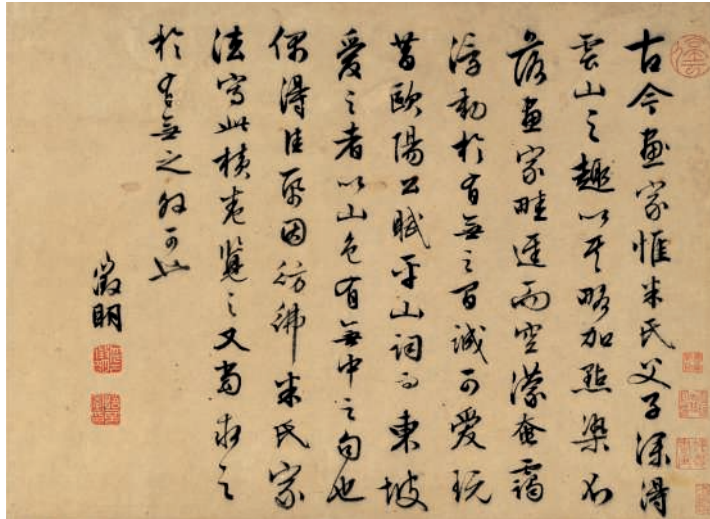 古今畫家惟米氏父子深得
雲山之趣以其略加點染不
落畫家畦逕而空濛奄靄
浮動於有無之間誠可愛玩
昔歐陽公賦平山詞而東坡
愛之者以山色有無中之句也
偶得佳紙因彷彿米氏家
法寫此橫卷覽之又當求之
於有無之外可也
徵明